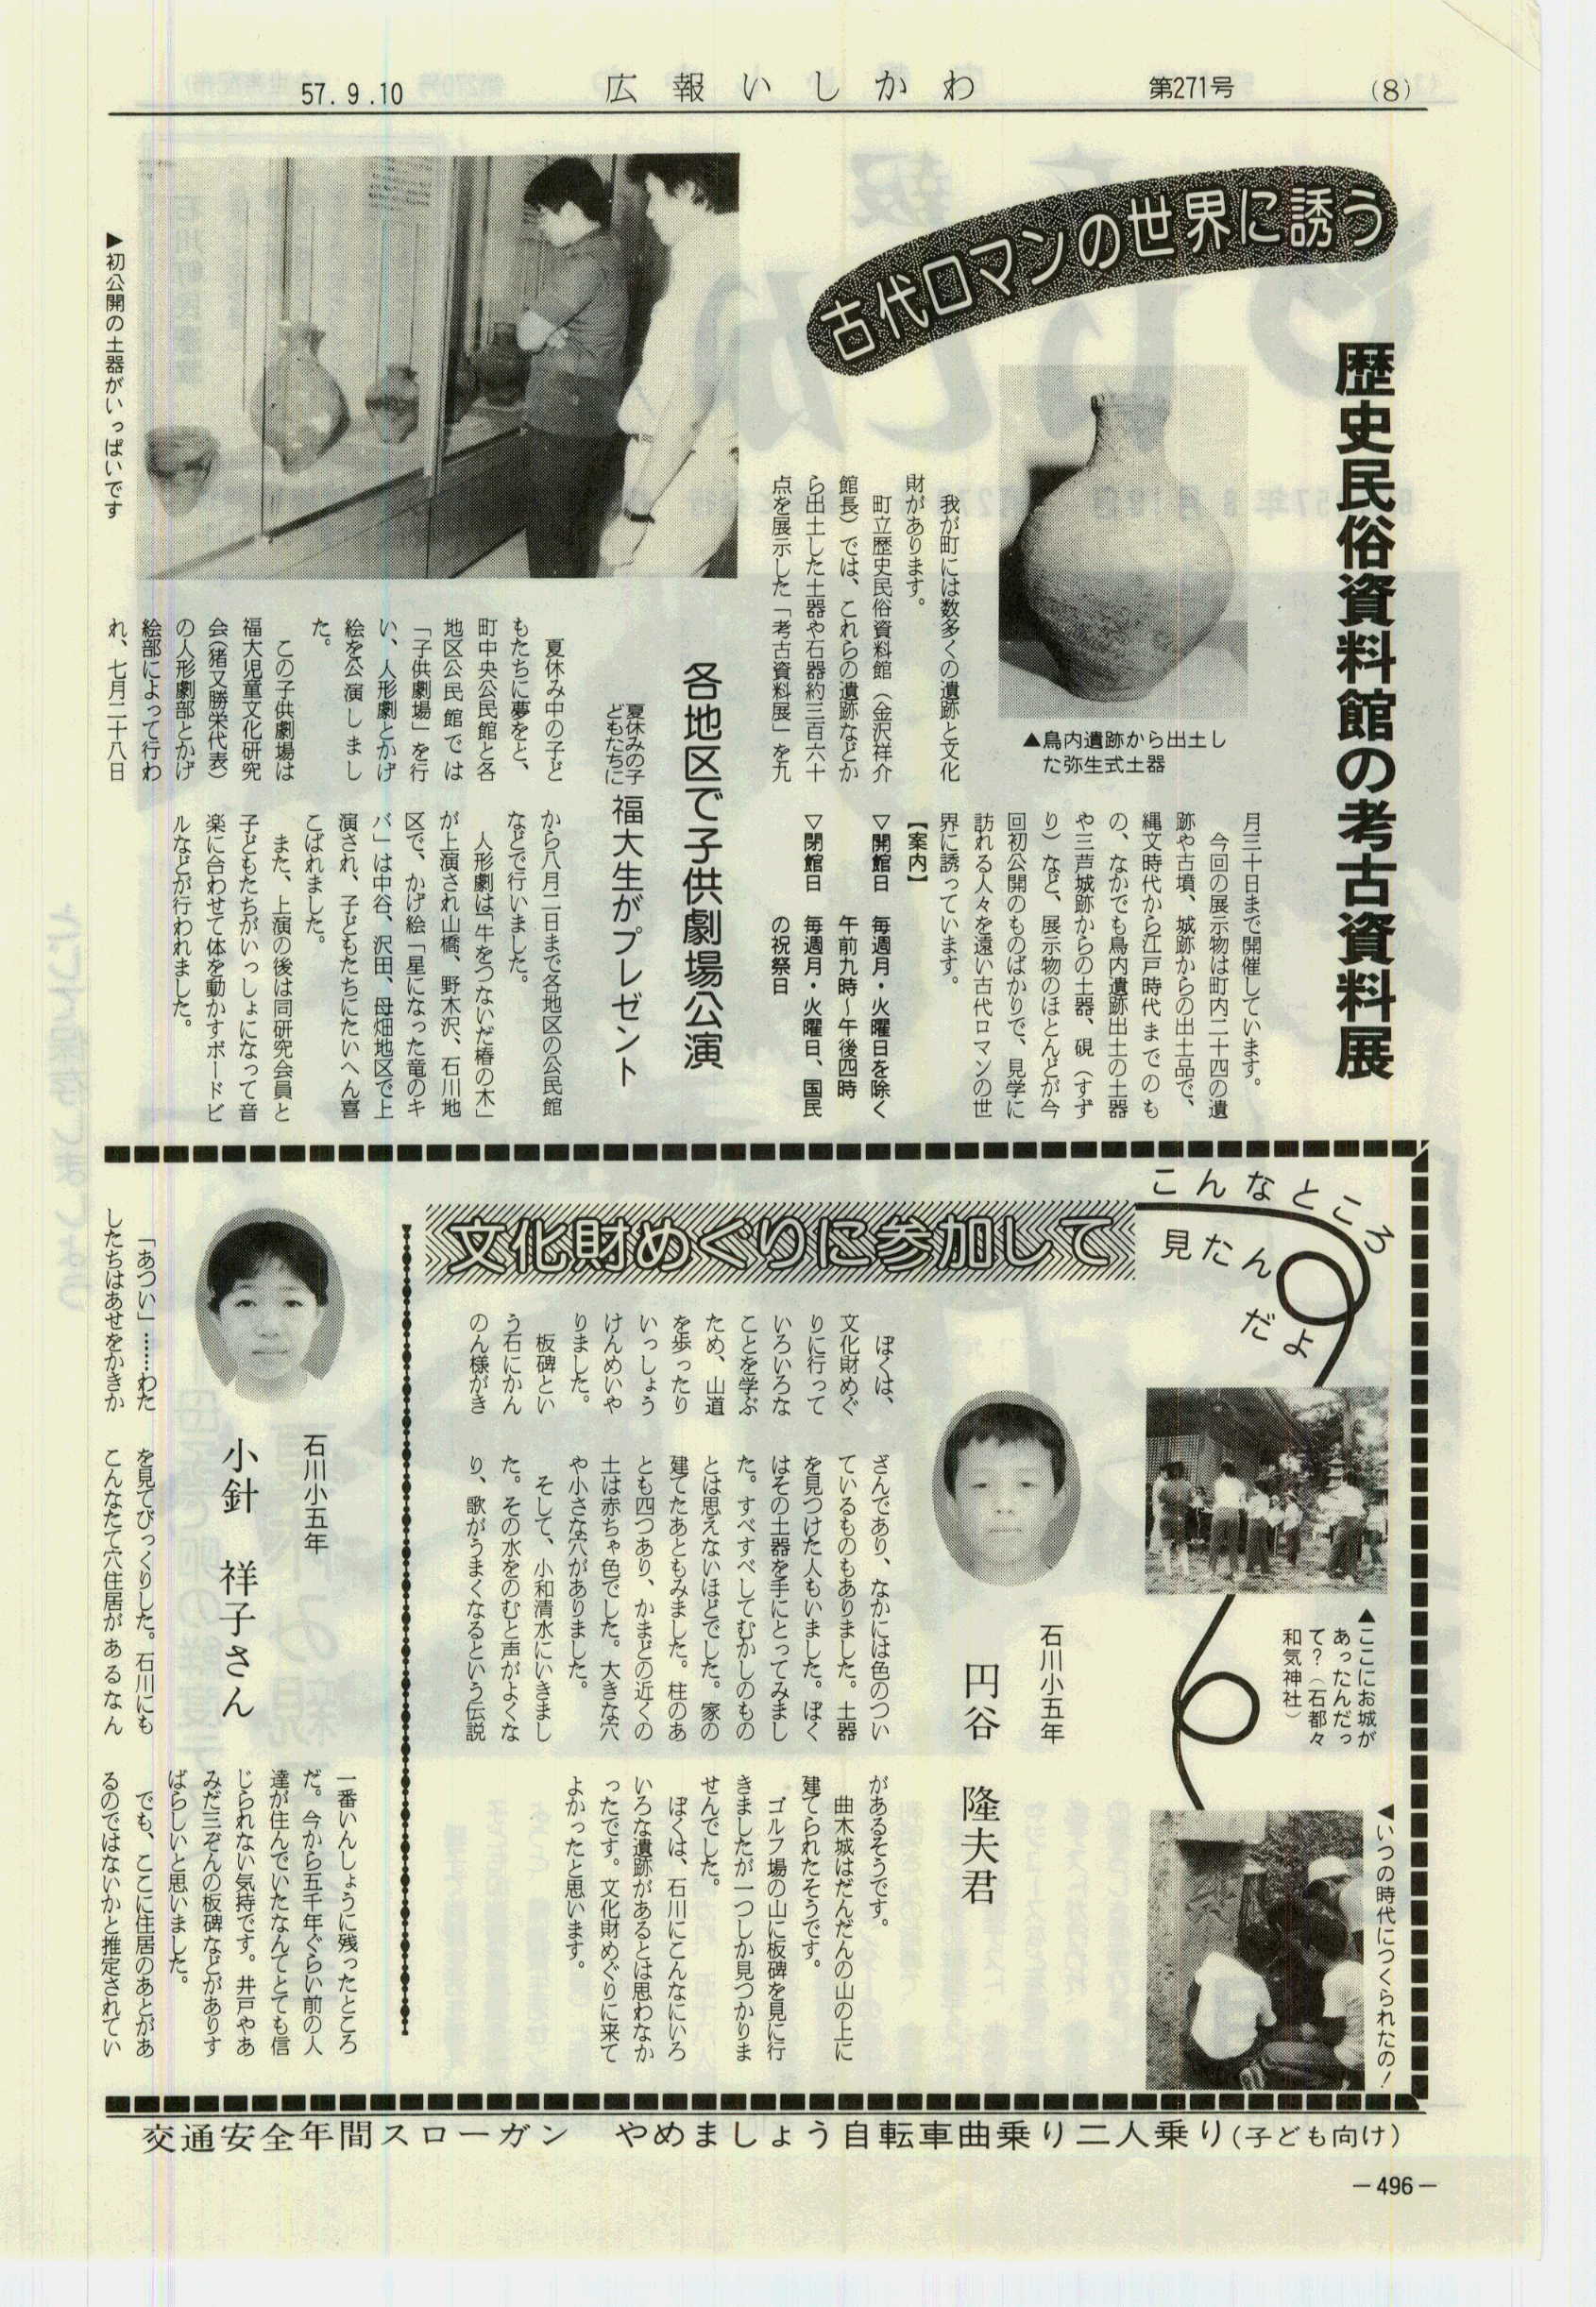 57.9.10
広報いしかわ
第271号
(8)
古代ロマンの世界に誘う
歴史民俗資料館の考古資料展
▲鳥内遺跡から出土し
た弥生式土器
▶初公開の土器がいっぱいです
我が町には数多くの遺跡と文化
財があります。
町立歴史民俗資料館（金沢祥介
館長）では、これらの遺跡などか
ら出土した土器や石器約三百六十
点を展示した「考古資料展」を九
月三十日まで開催しています。
今回の展示物は町内二十四の遺
跡や古墳、城跡からの出土品で、
縄文時代から江戸時代までのも
の、なかでも鳥内遺跡出土の土器
や三芦城跡からの土器、硯（すず
り）など、展示物のほとんどが今
回初公開のものばかりで、見学に
訪れる人々を遠い古代ロマンの世
界に誘っています。
【案内】
▽開館日　毎週月・火曜日を除く
午前九時～午後四時
▽閉館日　毎週月・火曜日、国民
の祝祭日
各地区で子供劇場公演
夏休みの子
どもたちに
福大生がプレゼント
夏休み中の子ど
もたちに夢をと、
町中央公民館と各
地区公民館では
「子供劇場」を行
い、人形劇とかげ
絵を公演しまし
た。
この子供劇場は
福大児童文化研究
会（猪又勝栄代表）
の人形劇部とかげ
絵部によって行わ
れ、七月二十八日
から八月二日まで各地区の公民館
などで行いました。
人形劇は「牛をつないだ椿の木」
が上演され山橋、野木沢、石川地
区で、かげ絵「星になった竜のキ
バ」は中谷、沢田、母畑地区で上
演され、子どもたちにたいへん喜
こばれました。
また、上演の後は同研究会員と
子どもたちがいっしょになって音
楽に合わせて体を動かすボードビ
ルなどが行われました。
こんなところ
見たんだよ
文化財めぐりに参加して
▲ここにお城が
あったんだっ
て？（石都々
和気神社）
◀いつの時代につくられたの！
石川小五年
円谷　隆夫君
ぼくは、
文化財めぐ
りに行って
いろいろな
ことを学ぶ
ため、山道
を歩ったり
いっしょう
けんめいや
りました。
板碑とい
う石にかん
のん様がき
ざんであり、なかには色のつい
ているものもありました。土器
を見つけた人もいました。ぼく
はその土器を手にとってみまし
た。すべすべしてむかしのもの
とは思えないほどでした。家の
建てたあともみました。柱のあ
とも四つあり、かまどの近くの
土は赤ちゃ色でした。大きな穴
や小さな穴がありました。
そして、小和清水にいきまし
た。その水をのむと声がよくな
り、歌がうまくなるという伝説
があるそうです。
曲木城はだんだんの山の上に
建てられたそうです。
ゴルフ場の山に板碑を見に行
きましたが一つしか見つかりま
せんでした。
ぼくは、石川にこんなにいろ
いろな遺跡があるとは思わなか
ったです。文化財めぐりに来て
よかったと思います。
石川小五年
小針　祥子さん
「あつい」……わた
したちはあせをかきか
を見てびっくりした。石川にも
こんなたて穴住居があるなん
一番いんしょうに残ったところ
だ。今から五千年ぐらい前の人
達が住んでいたなんてとても信
じられない気持です。井戸やあ
みだ三ぞんの板碑などがありす
ばらしいと思いました。
でも、ここに住居のあとがあ
るのではないかと推定されてい
交通安全年間スローガン　やめましょう自転車曲乗り二人乗り（子ども向け）
－496－